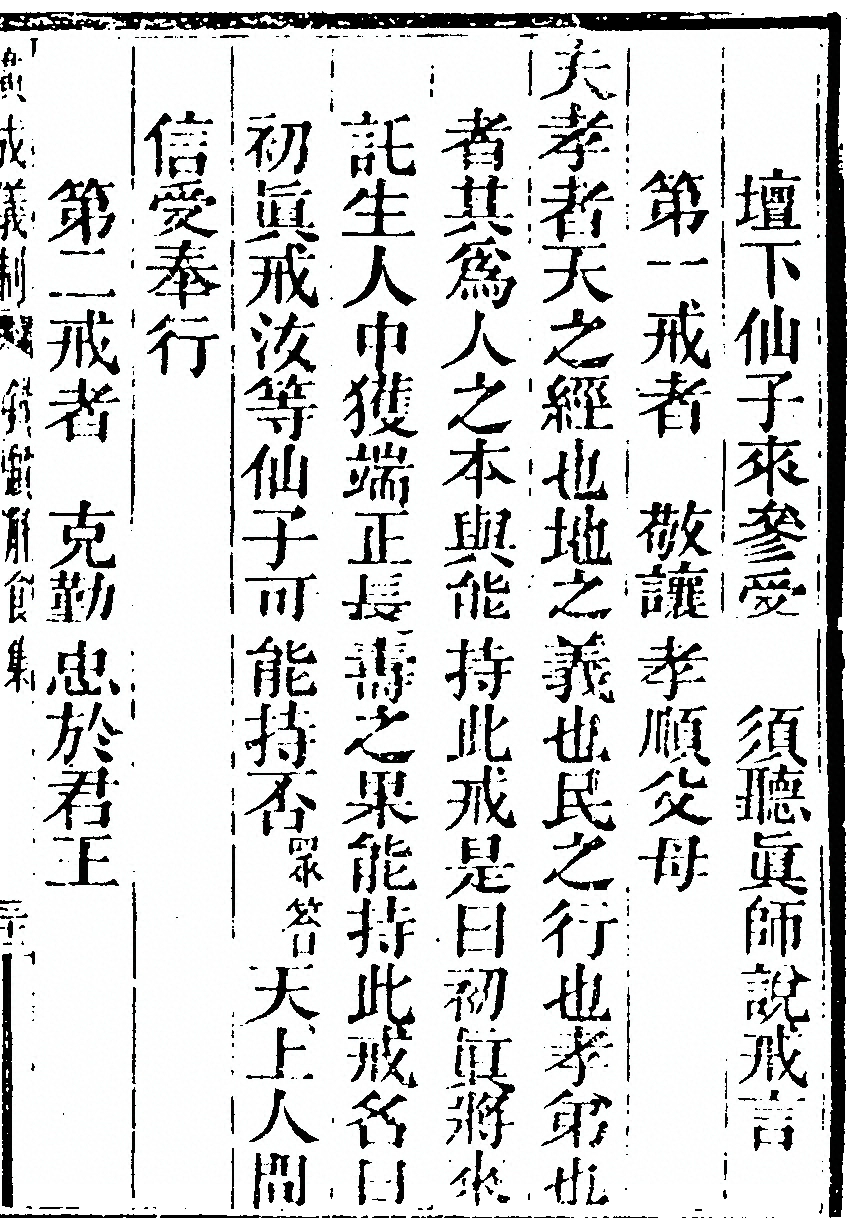 壇下仙子來參受　須聽眞師說戒言
第一戒者　敬讓孝順父母
夫孝者天之經也地之義也民之行也孝弟也
者其爲人之本與能持此戒是曰初眞將來
託生人中獲端正長壽之果能持此戒名曰
初眞戒汝等仙子可能持否眾答天上人間
信愛奉行
第二戒者　克勤忠於君王
廣成儀制 解食集